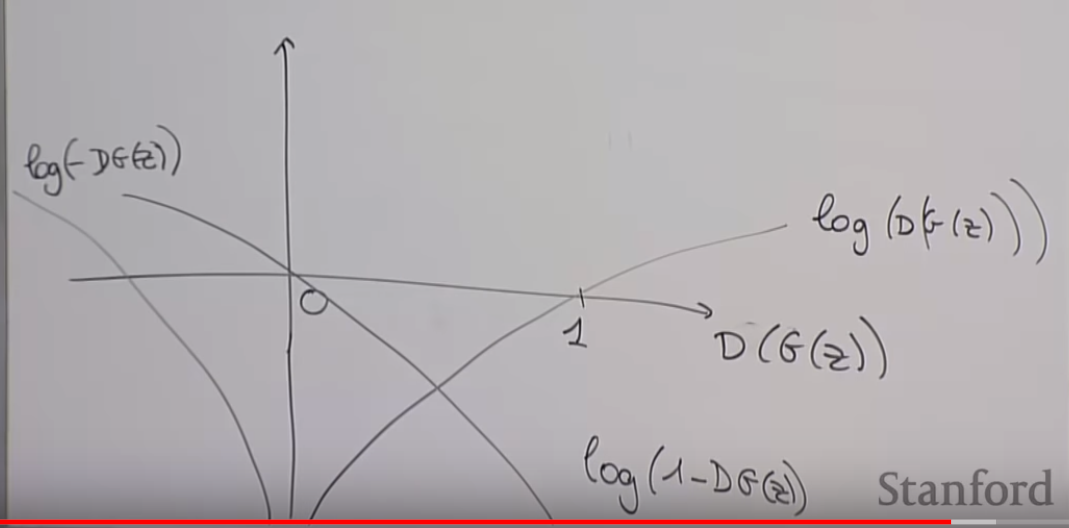 log(-DG(z))
log(D(G(z)))
0
1
D(G(z))
log(1-DG(z))
Stanford